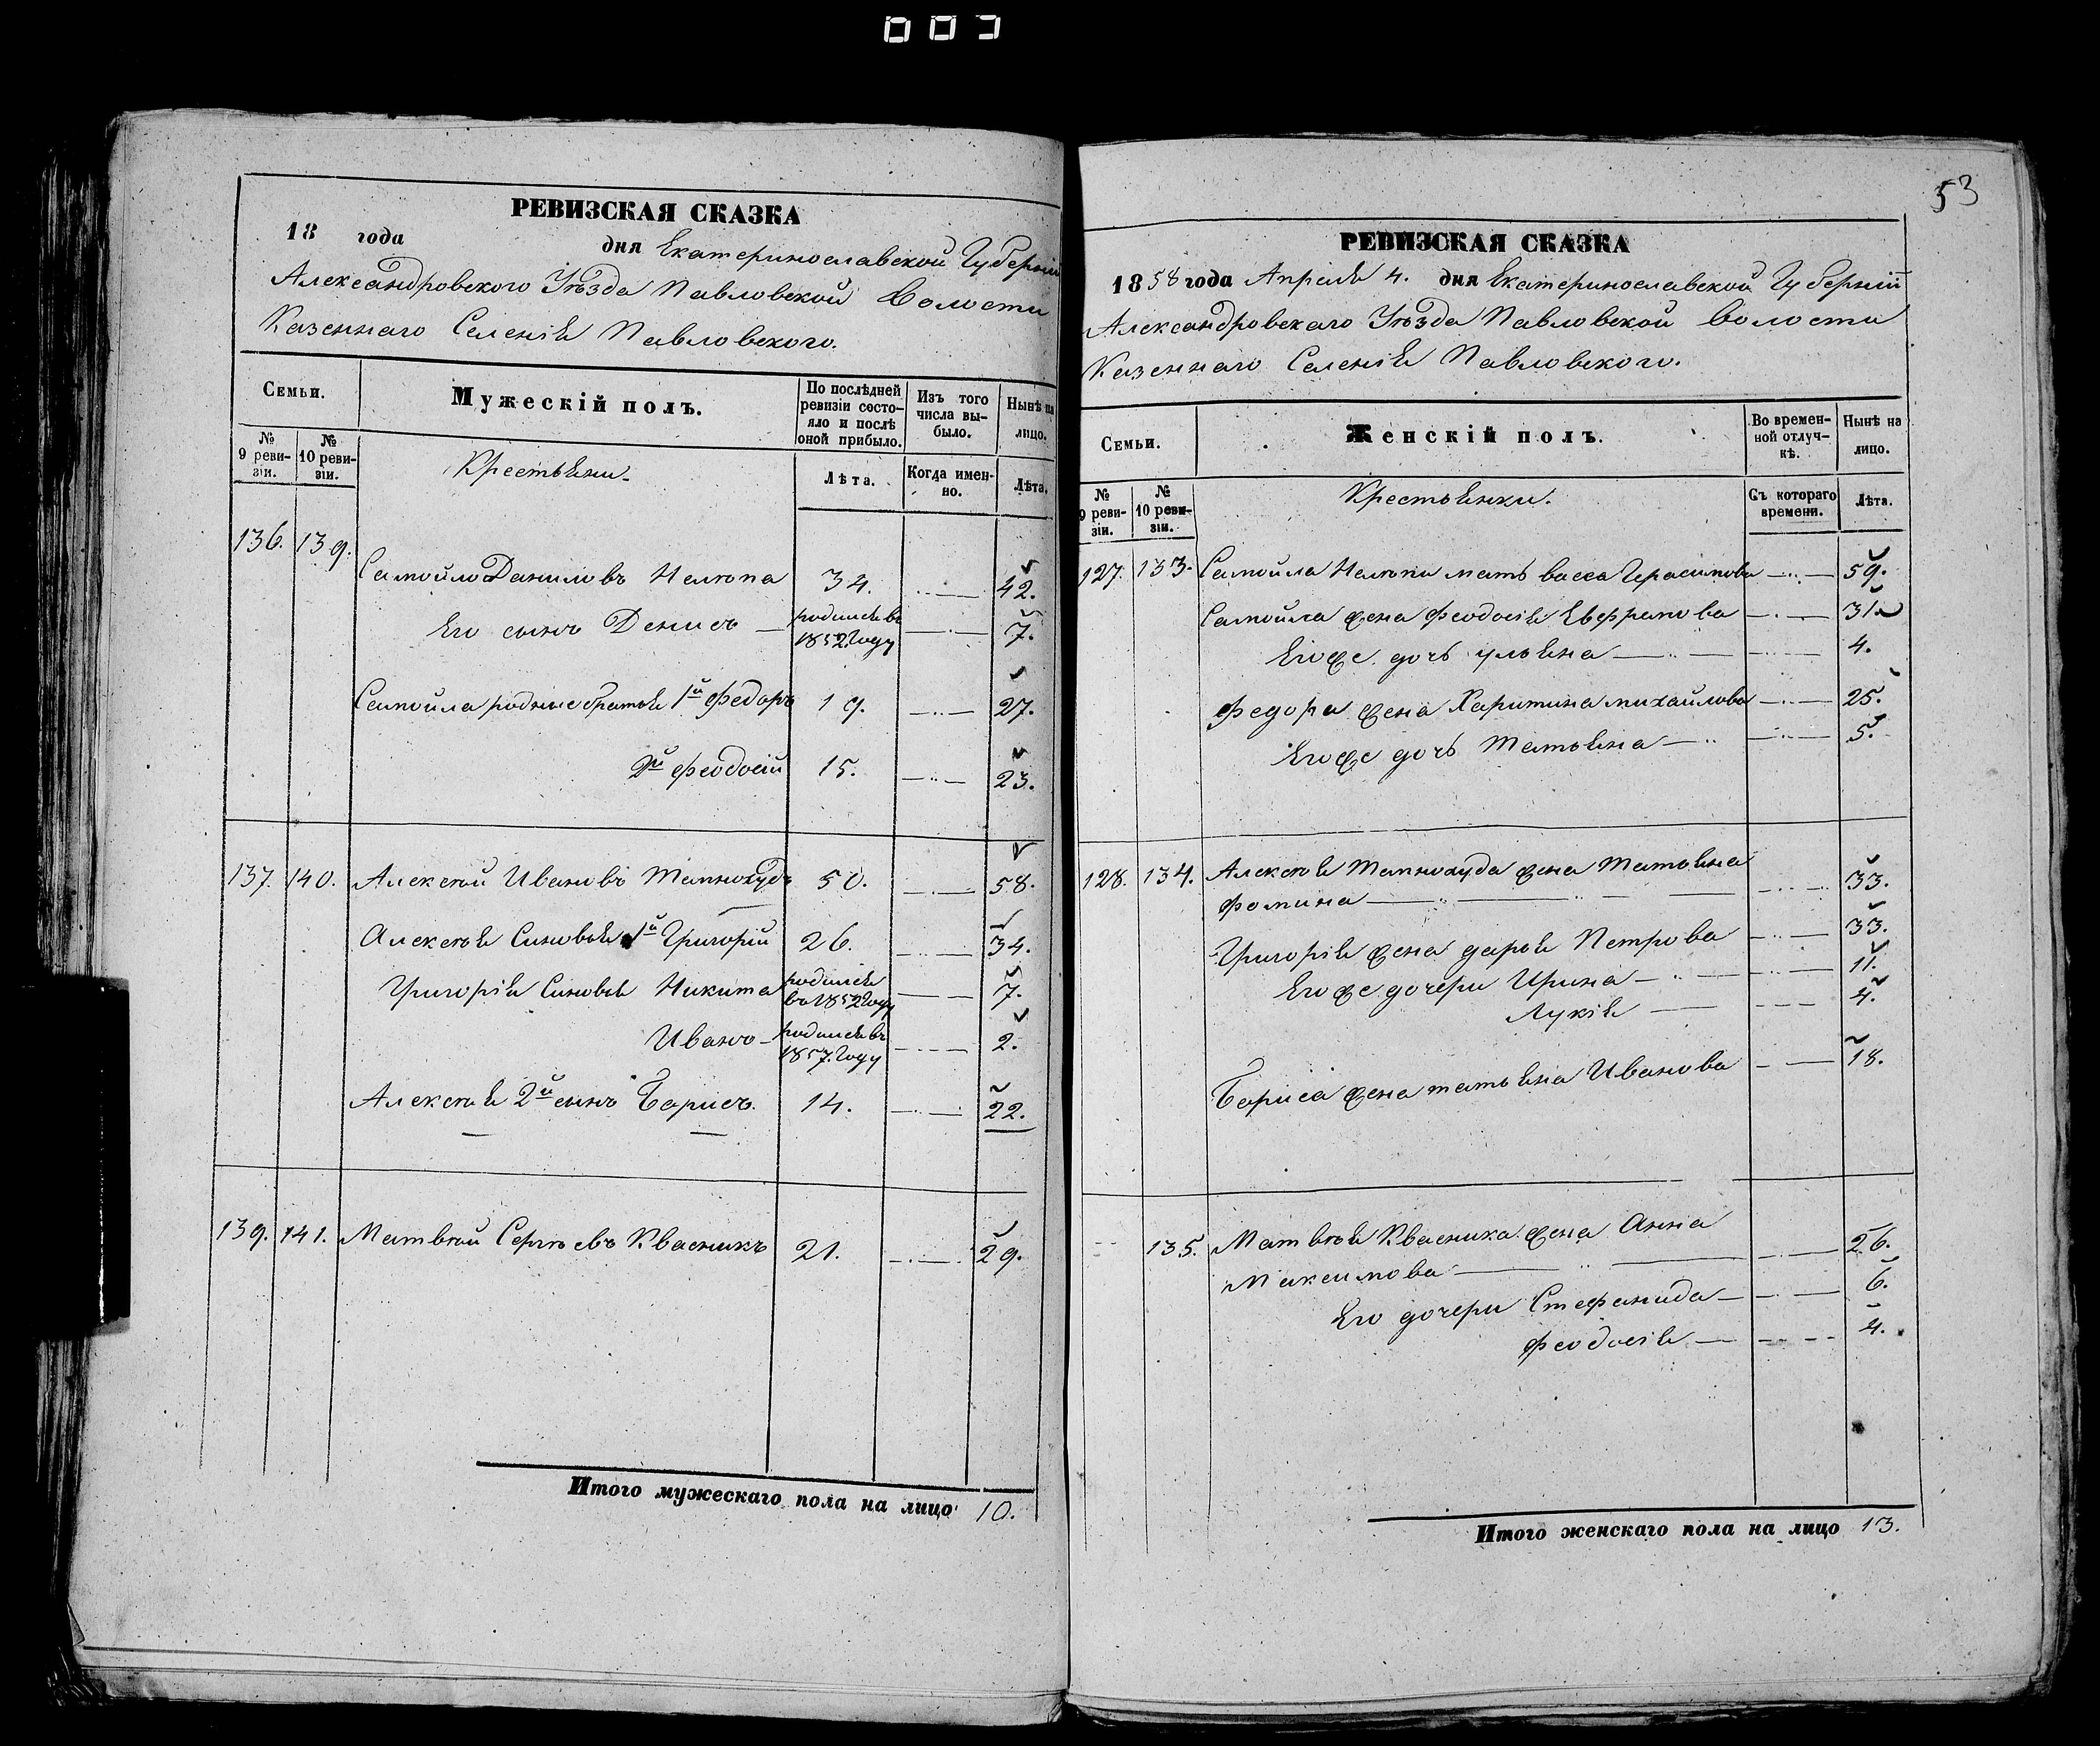 003
РЕВИЗСКАЯ СКАЗКА
18 года дня Екатеринославской Губерніи
Александровского Уѣзда Павловской Волости
Казеннаго Селенія Павловского.
Семьи.
Мужескій полъ.
По послѣдней ревизіи состояло и послѣ оной прибыло.
Изъ того числа выбыло.
Нынѣ на лицо.
№ 9 ревизіи.
№ 10 ревизіи.
Крестьяни
Лѣта.
Когда именно.
Лѣта.
136. 139.
Самойло Даниловъ Нелюпа 34. 42.
Его сынъ Денисъ родился въ 1852 Году 7.
Самойла родные братья 1й Федоръ 19. 27.
2й Феодосій 15. 23.
137. 140. Алексѣй Ивановъ 50. 58.
Алексѣя Синовья 1й Григорій 26. 34.
Григорія Синовья Никита родился въ 1852 Году 7.
Иванъ родился въ 1857. Году 2.
Алексѣя 2й сынъ Борисъ. 14. 22.
139. 141. Матвѣй Сергѣевъ Квасникъ 21. 29.
Итого мужескаго пола на лицо 10.
53
РЕВИЗСКАЯ СКАЗКА
1858 года Апреля 4. дня Екатеринославской Губерніи
Александровскаго Уѣзда Павловской Волости
Казеннаго Селенія Павловского.
Семьи.
Женскій полъ.
Во временной отлучкѣ.
Нынѣ на лицо.
№ 9 ревизіи.
№ 10 ревизіи.
Крестьянки.
Съ котораго времени.
Лѣта.
127. 133. Самойла Нелюпи мать Васса Герасимова 59.
Самойла жена Феодосія 31.
Егоже дочь Ульяна 4.
Федора жена Харитина Михайлова 25.
Егоже дочь Татьяна 5.
128. 134. Алексѣя жена Татьяна
Фомина 33.
Григорія жена Дарья Петрова 33.
Егоже дочери Ирина 11.
Лукія 4.
Бориса жена Татьяна Иванова 18.
135. Матвѣя Квасника жена Анна
Максимова 26.
Его дочери Стефанида 6.
Феодосія 4.
Итого женскаго пола на лицо 13.